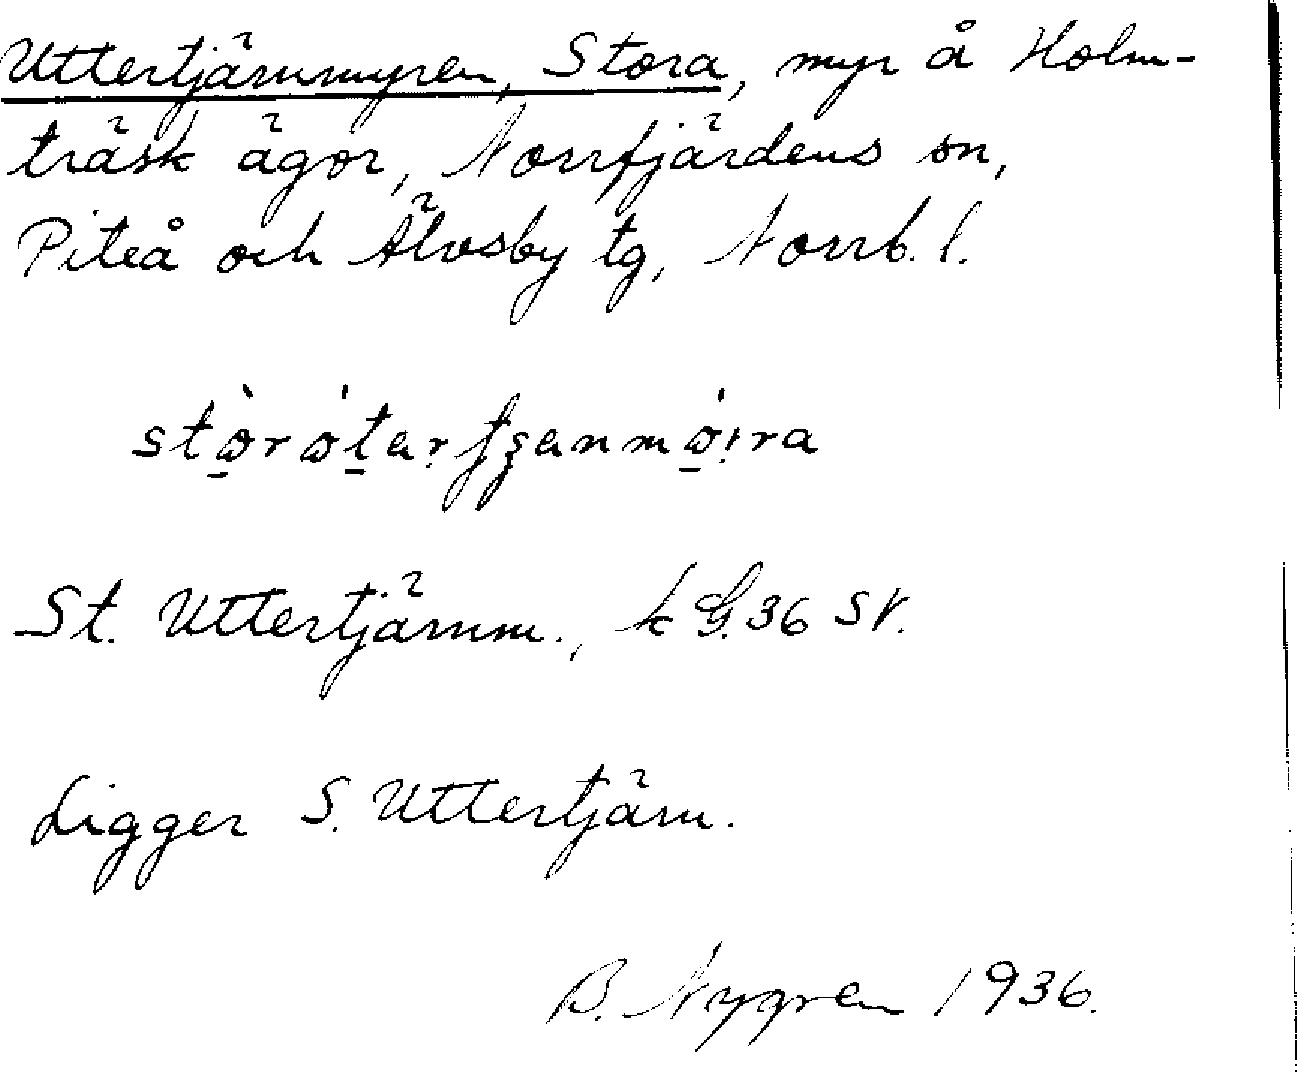 Uttertjärnmyren, Stora, myr å Holm-
träsk ägor, Norrfjärdens sn,
Piteå och Älvsby tg, Norrb. l.
St. Uttertjärnm., k G. 36 SV.
Ligger S. Uttertjärn.
B. Nygren 1936.